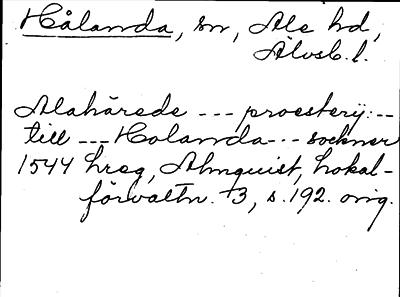 Hålanda, sn, Ale hd,
Älvsb. l.
Alahärede --- proesterij --
till --- Holanda --- sockner
1544 hreg, Almquist, Lokal-
förvaltn. 3, s. 192. orig.